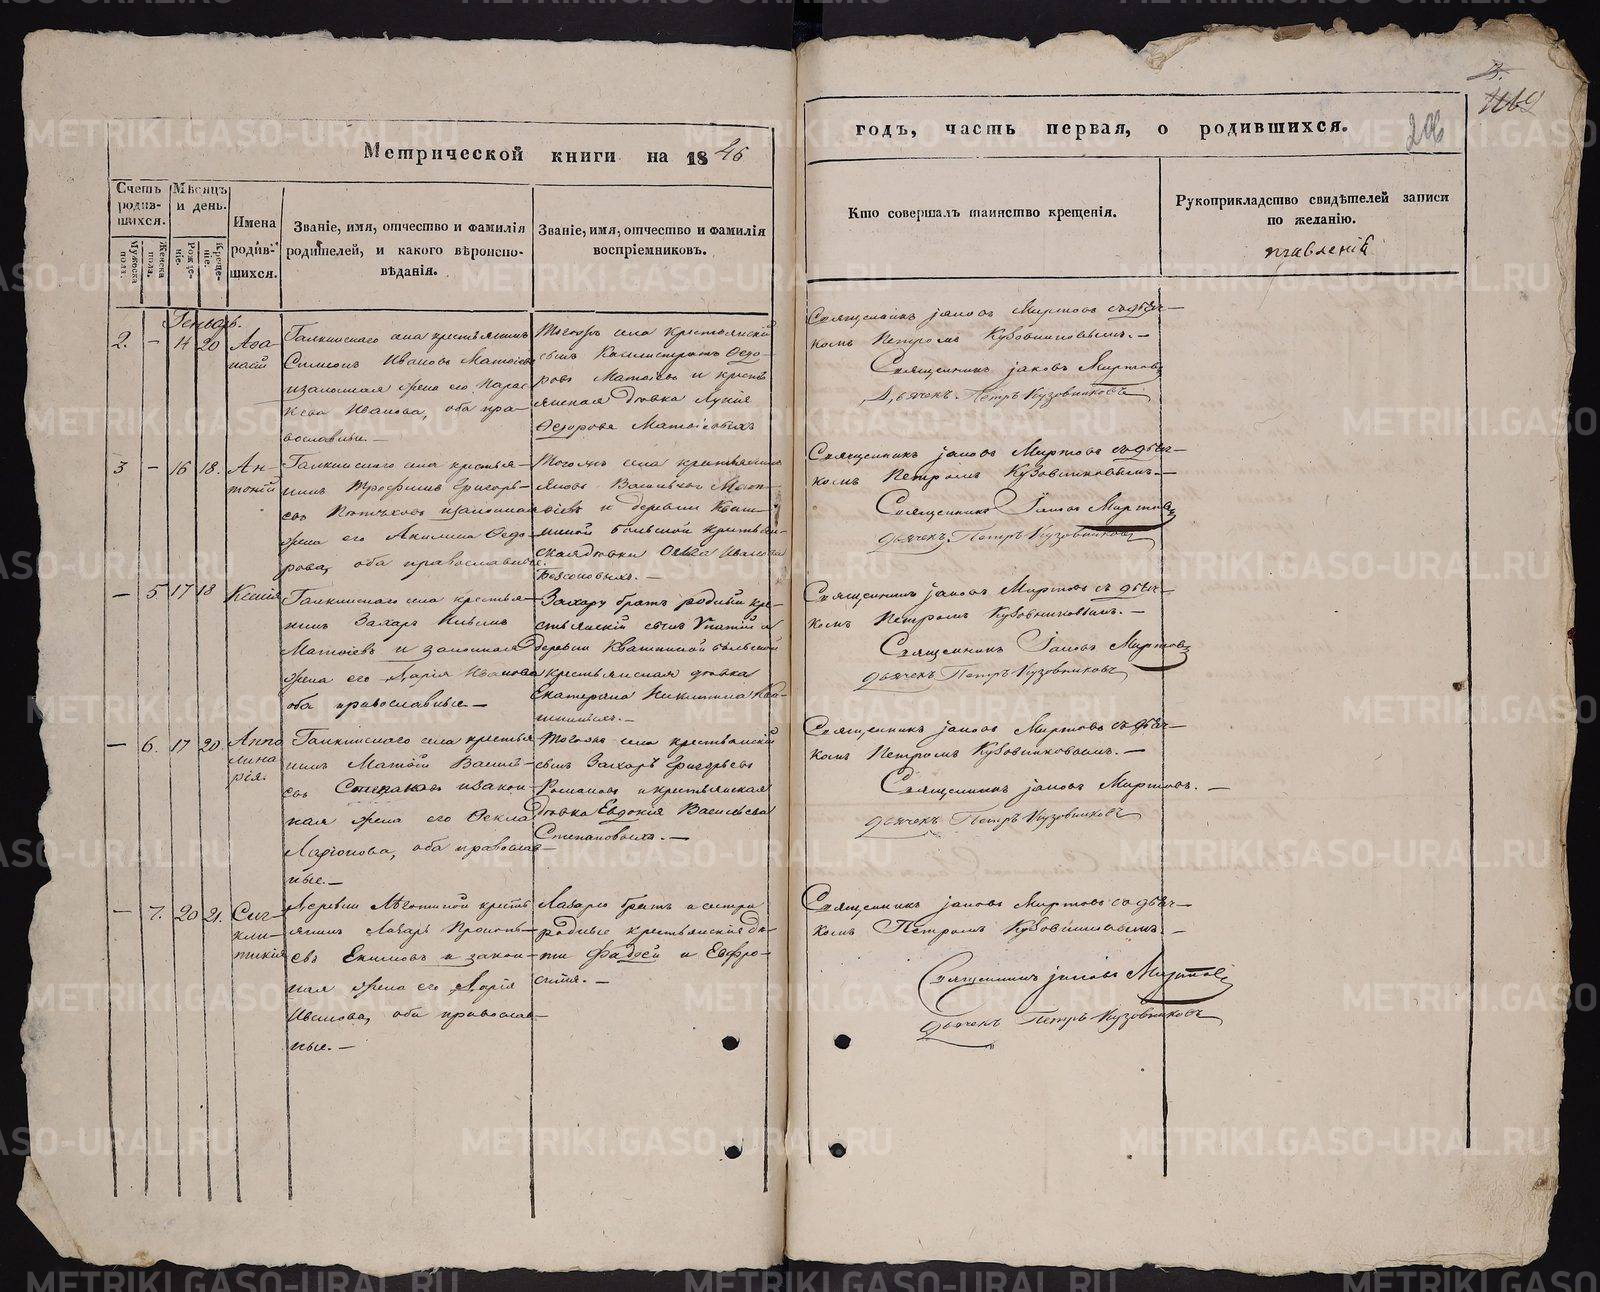 Метрической книги на 1846
Счетъ родив-
шихся.
Мужеска пола.
Женска пола.
Мѣсяцъ и день.
Рожде-
ніе.
Креще-
ніе.
Имена
родив-
шихся.
Званіе, имя, отчество и фамилія
родителей, и какого вѣроиспо-
вѣданія.
Званіе, имя, отчество и фамилія
воспріемниковъ.
годъ, часть первая, о родившихся.
206
Кто совершалъ таинство крещенія.
Рукоприкладство свидѣтелей записи
по желанію.
Генварь.
2. — 14 20
Галкинскаго села крестьянинъ
Симеонъ Ивановъ Матвіевъ
и законная жена его Парас-
кева Иванова, оба пра-
вославные.—
Тогожъ села крестьянскій
сынъ Каллистратъ Ѳедо-
ровъ Матвіевъ и кресть
янская дѣвка Лукия
Ѳедорова Матвіевыхъ
Священникъ Іаковъ Миртовъ съ дьяч—
комъ Петромъ Кузовниковымъ.—
Священникъ Іаковъ Миртовъ
Дьячекъ Петръ Кузовниковъ
3 — 16 18.
Ан-
тоній
Галкинскаго села крестья—
нинъ Трофимъ Григорь—
евъ и законная
жена его Акилина Ѳедо—
рова, оба православные.
Тогожъ села крестьянинъ
Яковъ Васильевъ Мат—
віевъ и деревни Кваш—
ниной большой крестьян—
ская дѣвка Ивано
Священникъ Іаковъ Миртовъ съ дьяч—
комъ Петромъ Кузовниковымъ.—
Священникъ Іаковъ Миртовъ
дьячекъ Петръ Кузовниковъ
— 5 17 18
Ксенія
Галкинскаго села крестья—
нинъ Захаръ
Матвіевъ и законная
жена его Марія Иванова
оба православные.—
Захару братъ родный кре—
стьянскій сынъ Ипатій и
деревни Квашниной большой
крестьянская дѣвка
Екатерина Никитина Ква—
шниныхъ.—
Священникъ Іаковъ Миртовъ съ дьяч—
комъ Петромъ Кузовниковымъ.—
Священникъ Іаковъ Миртовъ
дьячекъ Петръ Кузовниковъ
— 6. 17 20.
Аппо
лина
рія.
Галкинскаго села крестья
нинъ Матвій Василь—
евъ Степановъ и закон—
ная жена его Ѳекла
Ларіонова, оба православ—
ные.—
Тогожъ села крестьянскій
сынъ Захаръ Григорьевъ
Романовъ и крестьянская
дѣвка Евдокія Васильева
Степановыхъ.—
Священникъ Іаковъ Миртовъ съ дьяч—
комъ Петромъ Кузовниковымъ.—
Священникъ Іаковъ Миртовъ.—
дьячекъ Петръ Кузовниковъ
— 7. 20 21.
Син-
кли-
тикія
Деревни кресть
янинъ Лазарь Прокопь—
евъ Екимовъ и закон—
ная жена его Марія
Иванова, оба православ—
ные.—
Лазарю братъ и сестра
родные крестьянскіе дѣ—
ти Фадѣй и Евфро—
синія.—
Священникъ Іаковъ Миртовъ съ дьяч—
комъ Петромъ Кузовниковымъ.—
Священникъ Іаковъ Миртовъ
дьячекъ Петръ Кузовниковъ
METRIKI.GASO-URAL.RU